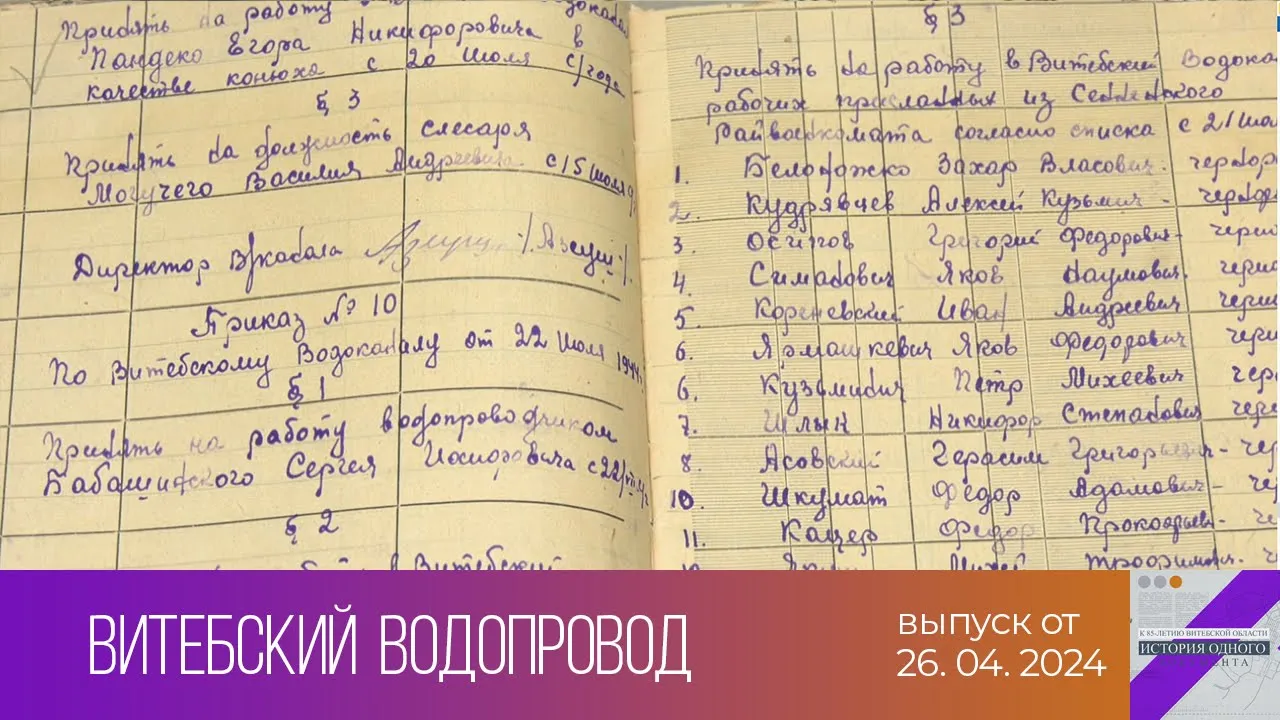 Принять на работу
Пандеко Егора Никифоровича в
качестве конюха с 20 июля с/года
§ 3
Принять на должность слесаря
Могучего Василия Андреевича с 15 июля
Директор
Приказ № 10
По Витебскому Водоканалу от 22 июля 1944
§ 1
Принять на работу водопроводчиком
Бабашинского Сергея Иосиповича с 22
§ 2
в Витебский
§ 3
Принять на работу в Витебский Водока
рабочих присланных из Сенненского
Райвоенкомата согласно списка с 21 июл
1. Захар Власович- чернор
2. Кудрявцев Алексей Кузьмич- чернор
3. Осипов Григорий Федорович- черн
4. Симанович Яков Наумович. черн
5. Кореневский Иван Андреевич черн
6. Ярмашкевич Яков Федорович- черн
6. Кузьмибич Петр Михеевич чер
7. Шлык Никифор Степанович чер
8. Асовский Герасим Григорьевич- чер
10. Шкумат Федор Адамович- че
11. Кацер Федор ч
Михей
ВИТЕБСКИЙ ВОДОПРОВОД
выпуск от
26. 04. 2024
К 85-ЛЕТИЮ ВИТЕБСКОЙ ОБЛАСТИ
ИСТОРИЯ ОДНОГО
ЕНТА